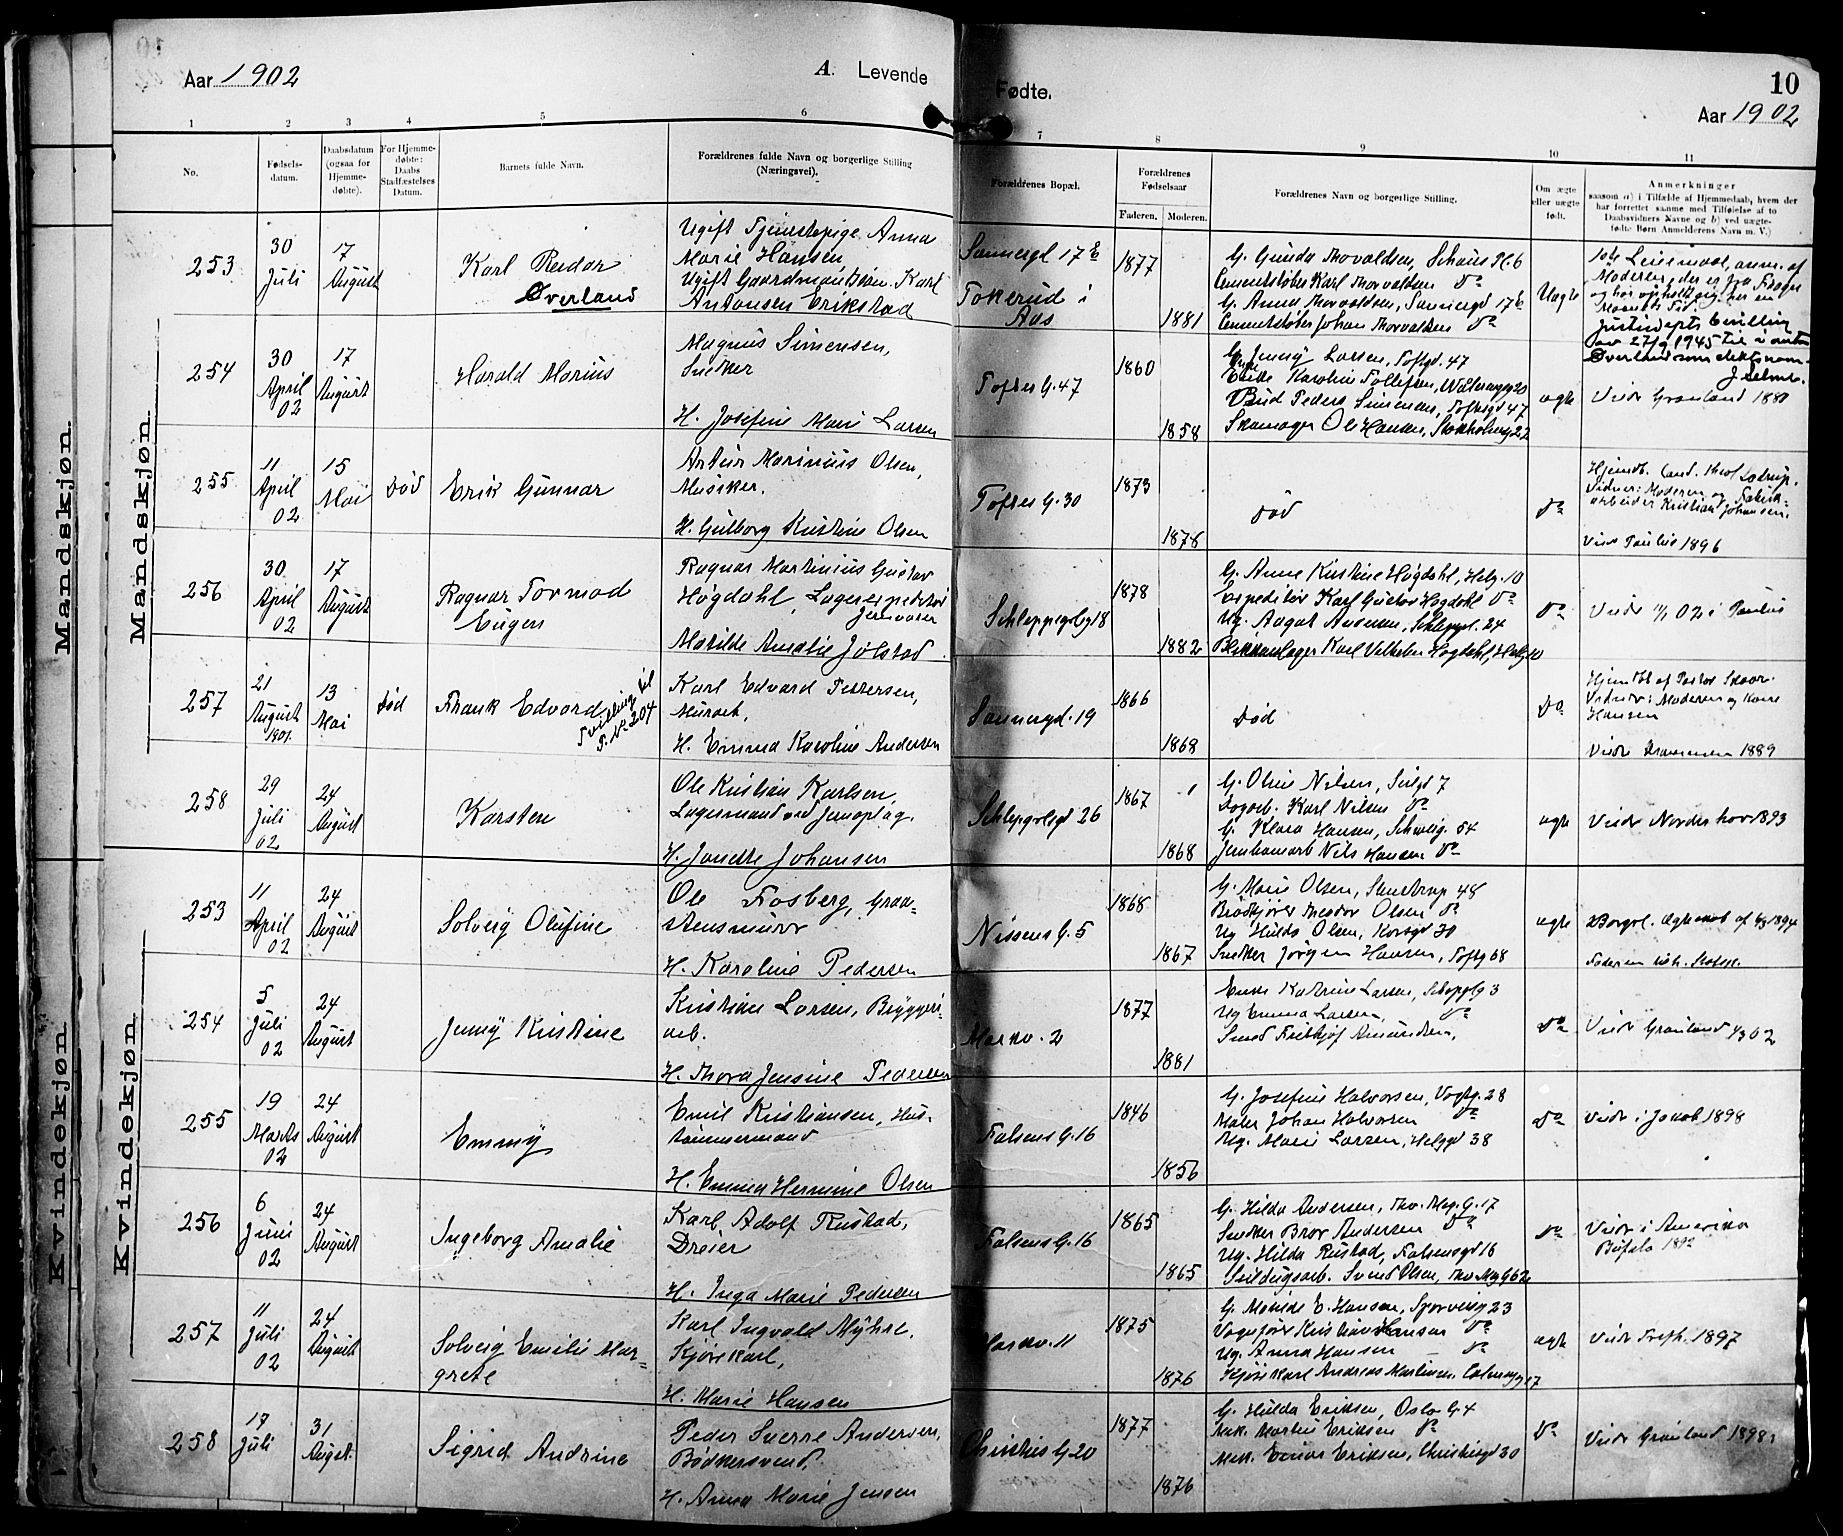 Aar 1902
A. Levende
Fødte.
10
Aar 1902
1 2 3 4 5 6 7 8 9 10 11
No.
Fødsels-
datum.
Daabsdatum
(ogsaa for
Hjemme-
døbte).
For Hjemme-
døbte:
Daabs
Stadfæstelses
Datum.
Barnets fulde Navn.
Forældrenes fulde Navn og borgerlige Stilling
(Næringsvei).
Forældrenes Bopæl.
Forældrenes
Fødselsaar
Faderen. Moderen.
Forældrenes Navn og borgerlige Stilling.
Om ægte
eller uægte
født.
Anmerkninger
saasom a) i Tilfælde af Hjemmedaab, hvem der
har forrettet samme med Tilføielse af to
Daabsvidners Navne og b) ved uægte-
fødte Børn Anmelderens Navn m. V.)
Mandskjøn.
Mandskjøn
Kvindekjøn
Kvindekjøn
253
30
Juli
17
August
Karl Reidar
Øverland
Ugift Tjenestepige Anna
Marie Hansen
Ugift Gaardmandsøn Karl
Antonsen Erikstad
Sannergd 17 b
Tokerud i
Aas
1877
1881
G. Gunda Thorvaldsen, Schous Pl. 6
Cementstøber Karl Thorvaldsen do
G. Anna Thorvaldsen, Sannergd 17 b
Cementstøber Johan Thorvaldsen do
Uægte
1ste Leiermaal, anm. af
Moderen, der er fra
Justisdepts bevilling
av 27/9 1945 til
Øverland som slektsnavn.
254
30
April
02
17
August
Harald Marius
Magnus Simensen,
Snekker
H. Josefine Marie Larsen
Toftes G. 47
1860
1858
G. Jenny Larsen, Toftgd. 47
Enke Karoline Tollefsen,
Bud Peders Simensen, Toftesgd 47
Skomager Ole Hansen,
ægte
Viede Grønland 1880
255
11
April
02
15
Mai
Død
Erik Gunnar
Artur Marinius Olsen,
Musiker.
H. Gulborg Kristine Olsen
Toftes G. 30
1873
1878
Død
do
Hjemdt. Cand. theol
Vidner: Moderen og Fabrik-
arbeider Kristian Johansen.
Viede Paulus 1896
256
30
April
02
17
August
Ragnar Tormod
Eugen
Ragnar Martinius Gustav
Høgdahl, Lagerexpeditør
Jernvarer
Matilde Amalie Jølstad
Schleppegrlsgd 8
1878
1882
G. Anne Kristine Høgdahl, Helg. 10
Expeditør Karl Gustav Høgdahl do
Ug. Aagot Andersen, Schleppgl. 24
Blikkenslager Karl Vilhelm Høgdahl, Helg 10
do
Viede 1/1 02 i Paulus
257
21
August
1901.
13
Mai
Død
Frank Edvard
Tvilling til
F. No 204
Karl Edvard Pettersen,
Murarb.
H. Emma Karoline Andersen
Sannergd. 19
1866
1868
Død
Do
Hjemdt af Pastor Skaar.
Vidner: Moderen og Karen
Hansen
Viede Drammen 1889
258
29
Juli
02
24
August
Karsten
Ole Kristian Karlsen
Lagermand ved Jernoplag.
H. Janette Johansen
Schleppgrlsgd 26
1867
1868
G. Oline Nilsen, Seilgd 7
Dogarb. Karl Nilsen do
G. Klara Hansen, Schweig. 54
Jernbanearb Nils Hansen do
ægte
Viede Norderhov 1893
253
11
April
02
24
August
Solveig Olufine
Ole Fosberg, Graa-
stensmurer
H. Karoline Pedersen
Nissens G. 5
1868
1867
G. Marie Olsen, Stenstrup 48
Brødkjører Theodor Olsen do
Ug Hilda Olsen, Korsgd 30
Snekker Jörgen Hansen, Toftg 68
ægte
Borgerl. Ægteskab af 1894
Faderen
254
5
Juli
02
24
August
Jenny Kristine
Kristian Larsen, Bryggeri-
arb.
H. Thora Jensine Pedersen
Markv. 2
1877
1881
Enke Katrine Larsen, Schleppgl 3
Ug Emma Larsen, do
Smed Fridtjof Amundsen,
do
Viede Grønland 4/3 02
255
19
Marts
02
24
August
Emmy
Emil Kristiansen, Hus-
tømmermand
H. Emma Hermine Olsen
Falsens G. 16
1846
1856
G. Josefine Halvorsen, Vogtg. 28
Maler Johan Halvorsen do
Ug. Marie Larsen, Helggd 38
do
Viede i Jakob 1898
256
6
Juni
02
24
August
Ingeborg Amalie
Karl Adolf Rustad,
Dreier
H. Inga Marie Pedersen
Falsens G. 16
1865
1865
G. Hilda Andersen, Thv. Mey. G. 17
Snekker Bror Andersen do
Ug. Hilda Rustad, Falsensgd 16
Seildugsarb. Svend Olsen, Thv Mey G 62
do
Viede i Amerika
Bufalo
257
11
Juli
02
24
August
Solveig Emilie Mar-
grete
Karl Ingvald Myhre,
Kjørekarl,
H. Marie Hansen
Markv. 11
1875
1876
G. Matilde E. Hansen, Sporveisg 23
Vognfører Kristian Hansen do
Ug. Anna Hansen do
Kjørekarl Andreas Martinsen,
ægte
Viede Treft. 1897
258
17
Juli
31
August.
Sigrid Andrine
Peder Sverre Andersen,
Bødkersvend.
H. Anna Marie Jensen
Christies G. 20
1877
1876
G. Hulda Eriksen, Oslo G 4
Mek. Martin Eriksen do
Mek. Einar Eriksen, Christiesgd 30
do
Viede Grønland 1898.